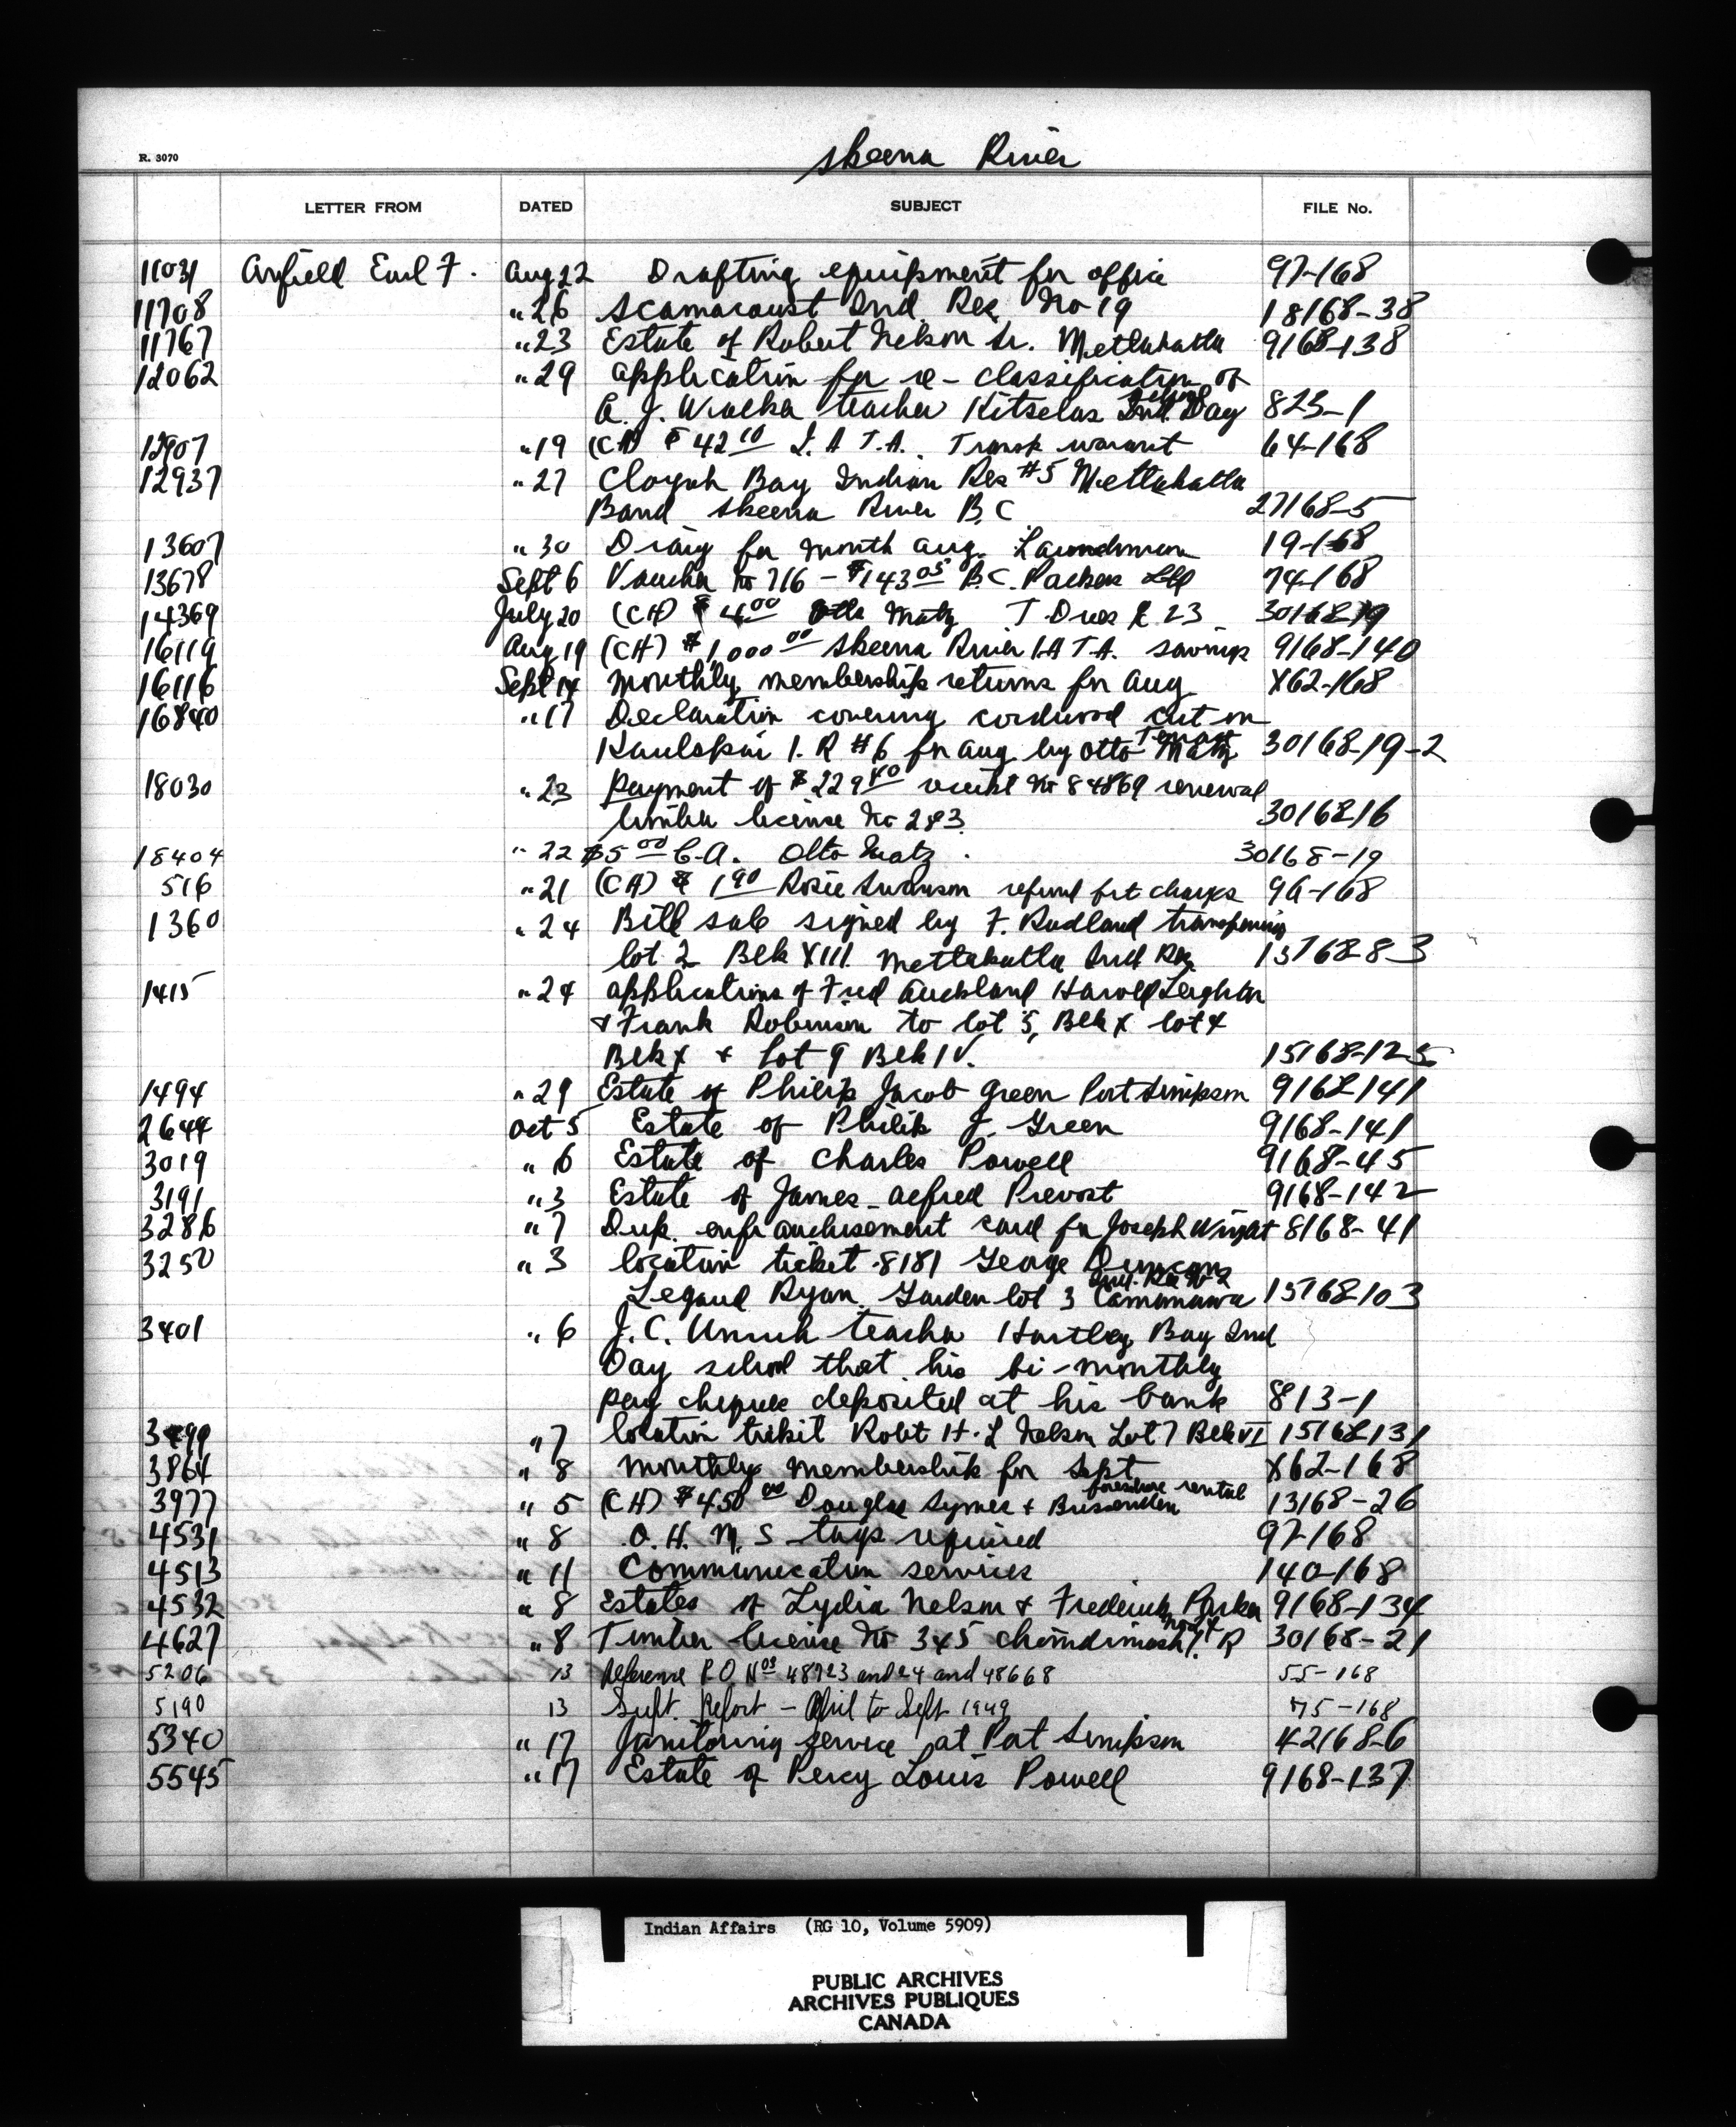 R. 3070
Skeena River
LETTER FROM DATED SUBJECT FILE No.
11031 Anfield Earl F. Aug 22 Drafting equipment for office 97-168
11708 " 26 Scamaroust Ind. Res. No 19 18168-38
11767 " 23 Estate of Robert Nelson Sr. Metlakatla 9168-138
12062 " 29 application for re-classification of
school
A. J. teacher Kitselas Ind. Day 823-1
12907 " 19 (CH) $ 42 10 I. A T.A. Transp warrant 64-168
12937 " 27 Cloyah Bay Indian Res #5 Metlakatla
Band Skeena River B.C 27168-5
13607 " 30 Diary for month Aug. 19-168
13678 Sept 6 Voucher No 716 - $143 05 B.C. Packers Ltd 74-168
14369 July 20 (CH) $ 4 00 Otto Matz T Dues 23 30168-19
16119 Aug 19 (CH) $1,000 00 Skeena River I.A T.A. savings 9168-140
16116 Sept 14 Monthly membership returns for Aug. X62-168
16840 " 17 Declaration covering cordwood cut on
Kaulskai I. R #6 for Aug by Otto Matz 30168-19-2
18030 " 23 Payment of $229 40 No 84869 renewal
timber license No 283. 30168-16
18404 " 22 $5 00 C.A. Otto Matz. 30168-19
516 " 21 (CH) $ 1 90 Rosie Swanson refund frt charges 96-168
1360 " 24 Bill sale signed by F. Rudland transferring
lot 2 Blk XIII Metlakatla Ind Res 15168-83
1415 " 24 applications of Fred Auckland Harold Leighton
& Frank Robinson to lot 5, Blk X lot 4
Blk X & lot 9 Blk IV. 15168-125
1494 " 29 Estate of Philip Jacob Green Port Simpson 9168-141
2644 Oct 5 Estate of Philip J. Green 9168-141
3019 " 6 Estate of Charles Powell 9168-45
3191 " 3 Estate of James Alfred Prevost 9168-142
3286 " 7 Dup. enfranchisement card for Joseph Wright 8168-41
3250 " 3 location ticket 8181 George Duncan
Ind. Res No 2
Legaud Ryan. Garden lot 3 15168-103
3401 " 6 J. C. Unruh teacher Hartley Bay Ind
Day school that his bi-monthly
pay cheques deposited at his bank 813-1
3499 " 7 location ticket Robt H. L Nelson Lot 7 Blk VI 15168-131
3864 " 8 Monthly Membership for Sept X62-168
foreshore rental
3977 " 5 (CH) $450 00 Douglas Symes & Brissenden 13168-26
4531 " 8 O. H. M. S tags required 97-168
4513 " 11 Communication services 140-168
4532 " 8 Estates of Lydia Nelson & Frederick Parker 9168-134
4627 " 8 Timber license No 345 I. R 30168-21
5206 13 Reference P.O. Nos 48723 and 24 and 48668 55-168
5190 13 Supt. Report - April to Sept 1949 75-168
5340 " 17 Janitoring service at Port Simpson 42168-6
5545 " 17 Estate of Percy Louis Powell 9168-137
Indian Affairs (RG 10, Volume 5909)
PUBLIC ARCHIVES
ARCHIVES PUBLIQUES
CANADA